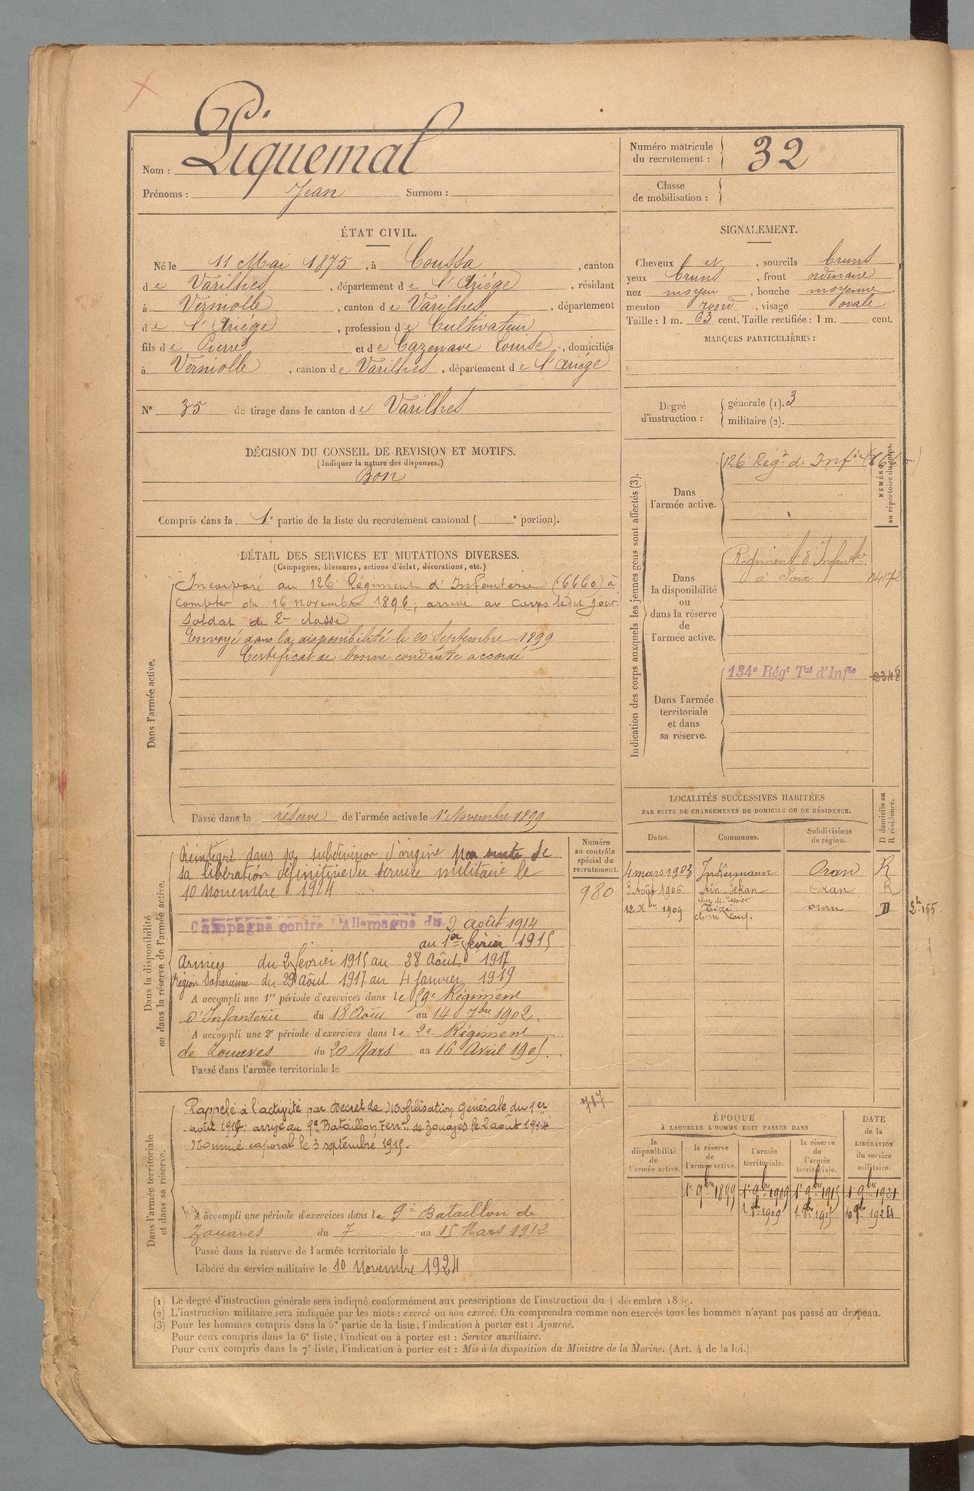 Nom : Piquemal
Prénoms : Jean Surnom :
Numéro matricule du recrutement : 32
Classe de mobilisation :
ÉTAT CIVIL.
Né le 11 Mai 1875, à Coussa, canton
de Varilhes, département de l'Ariège, résidant
à Verniolle, canton de Varilhes, département
de l'Ariège, profession de Cultivateur
fils de Pierre et de Cazenave Louise, domiciliés
à Verniolle, canton de Varilhes, département de l'Ariège
N° 35 de tirage dans le canton de Varilhes
SIGNALEMENT.
Cheveux et, sourcils bruns
yeux bruns, front ordinaire
nez moyen, bouche moyenne
menton rond, visage ovale
Taille : 1 m. 63 cent. Taille rectifiée : 1 m. cent.
MARQUES PARTICULIÈRES :
Degré d'instruction : générale (1). 3
militaire (2).
DÉCISION DU CONSEIL DE REVISION ET MOTIFS.
(Indiquer la nature des dispenses.)
Bon
Compris dans la 1e partie de la liste du recrutement cantonal ( e portion).
DÉTAIL DES SERVICES ET MUTATIONS DIVERSES.
(Campagnes, blessures, actions d'éclat, décorations, etc.)
Dans l'armée active.
Incorporé au 126e Régiment d'Infanterie (6660) à
compter du 16 novembre 1896, arrivé au Corps le dit jour.
Soldat de 2e classe
Envoyé dans la disponibilité le 20 Septembre 1899
Certificat de bonne conduite accordé
Passé dans la réserve de l'armée active le 1er Novembre 1899
Indication des corps auxquels les jeunes gens sont affectés (3).
Dans l'armée active.
126e Régt de Infie 6660
NUMÉRO au répertoire du corps.
Dans la disponibilité ou dans la réserve de l'armée active.
Régiment d'Infanterie
à Foix
Dans l'armée territoriale et dans sa réserve.
134e Régt Tal d'Infie
Dans la disponibilité ou dans la réserve de l'armée active.
Réintégré dans sa subdivision d'origine par suite de
sa libération définitive du service militaire le
10 Novembre 1924
Campagne contre l'Allemagne du 2 août 1914
au 1er février 1915
Armées du 2 février 1915 au 28 Août 1917
Région Saharienne du 29 août 1917 au 4 janvier 1919
A accompli une 1re période d'exercices dans le 59e Régiment
d'Infanterie du 18 Août au 14 7bre 1902.
A accompli une 2e période d'exercices dans le 2e Régiment
de Zouaves du 20 Mars au 16 Avril 1905.
Passé dans l'armée territoriale le
Numéro au contrôle spécial du recrutement.
980
LOCALITÉS SUCCESSIVES HABITÉES
PAR SUITE DE CHANGEMENTS DE DOMICILE OU DE RÉSIDENCE.
Dates. Communes. Subdivisions de région. D domicile ou R résidence.
4 mars 1903 Inkermann Oran R
3 août 1906 Aïn Fekan Oran R
12 Xbre 1909 Tizi Oran D
Dans l'armée territoriale et dans sa réserve.
Rappelé à l'activité par Décret de Mobilisation Générale du 1er
août 1914; arrivé au 9e Bataillon Terral de Zouaves le 2 août 1914
Nommé caporal le 3 septembre 1915.
A accompli une période d'exercices dans le 9e Bataillon de
Zouaves du 7 au 15 Mars 1912
Passé dans la réserve de l'armée territoriale le
Libéré du service militaire le 10 Novembre 1924
ÉPOQUE
À LAQUELLE L'HOMME DOIT PASSER DANS
la disponibilité de l'armée active. la réserve de l'armée active. l'armée territoriale. la réserve de l'armée territoriale. DATE de la LIBÉRATION du service militaire.
1er 9bre 1899 1er 9bre 1909 1er 9bre 1915 1er 9bre 1921
(1) Le degré d'instruction générale sera indiqué conformément aux prescriptions de l'instruction du 4 décembre 1889.
(2) L'instruction militaire sera indiquée par les mots : exercé ou non exercé. On comprendra comme non exercés tous les hommes n'ayant pas passé au drapeau.
(3) Pour les hommes compris dans la 5e partie de la liste, l'indication à porter est : Ajourné.
Pour ceux compris dans la 6e liste, l'indication à porter est : Service auxiliaire.
Pour ceux compris dans la 7e liste, l'indication à porter est : Mis à la disposition du Ministre de la Marine. (Art. 4 de la loi.)